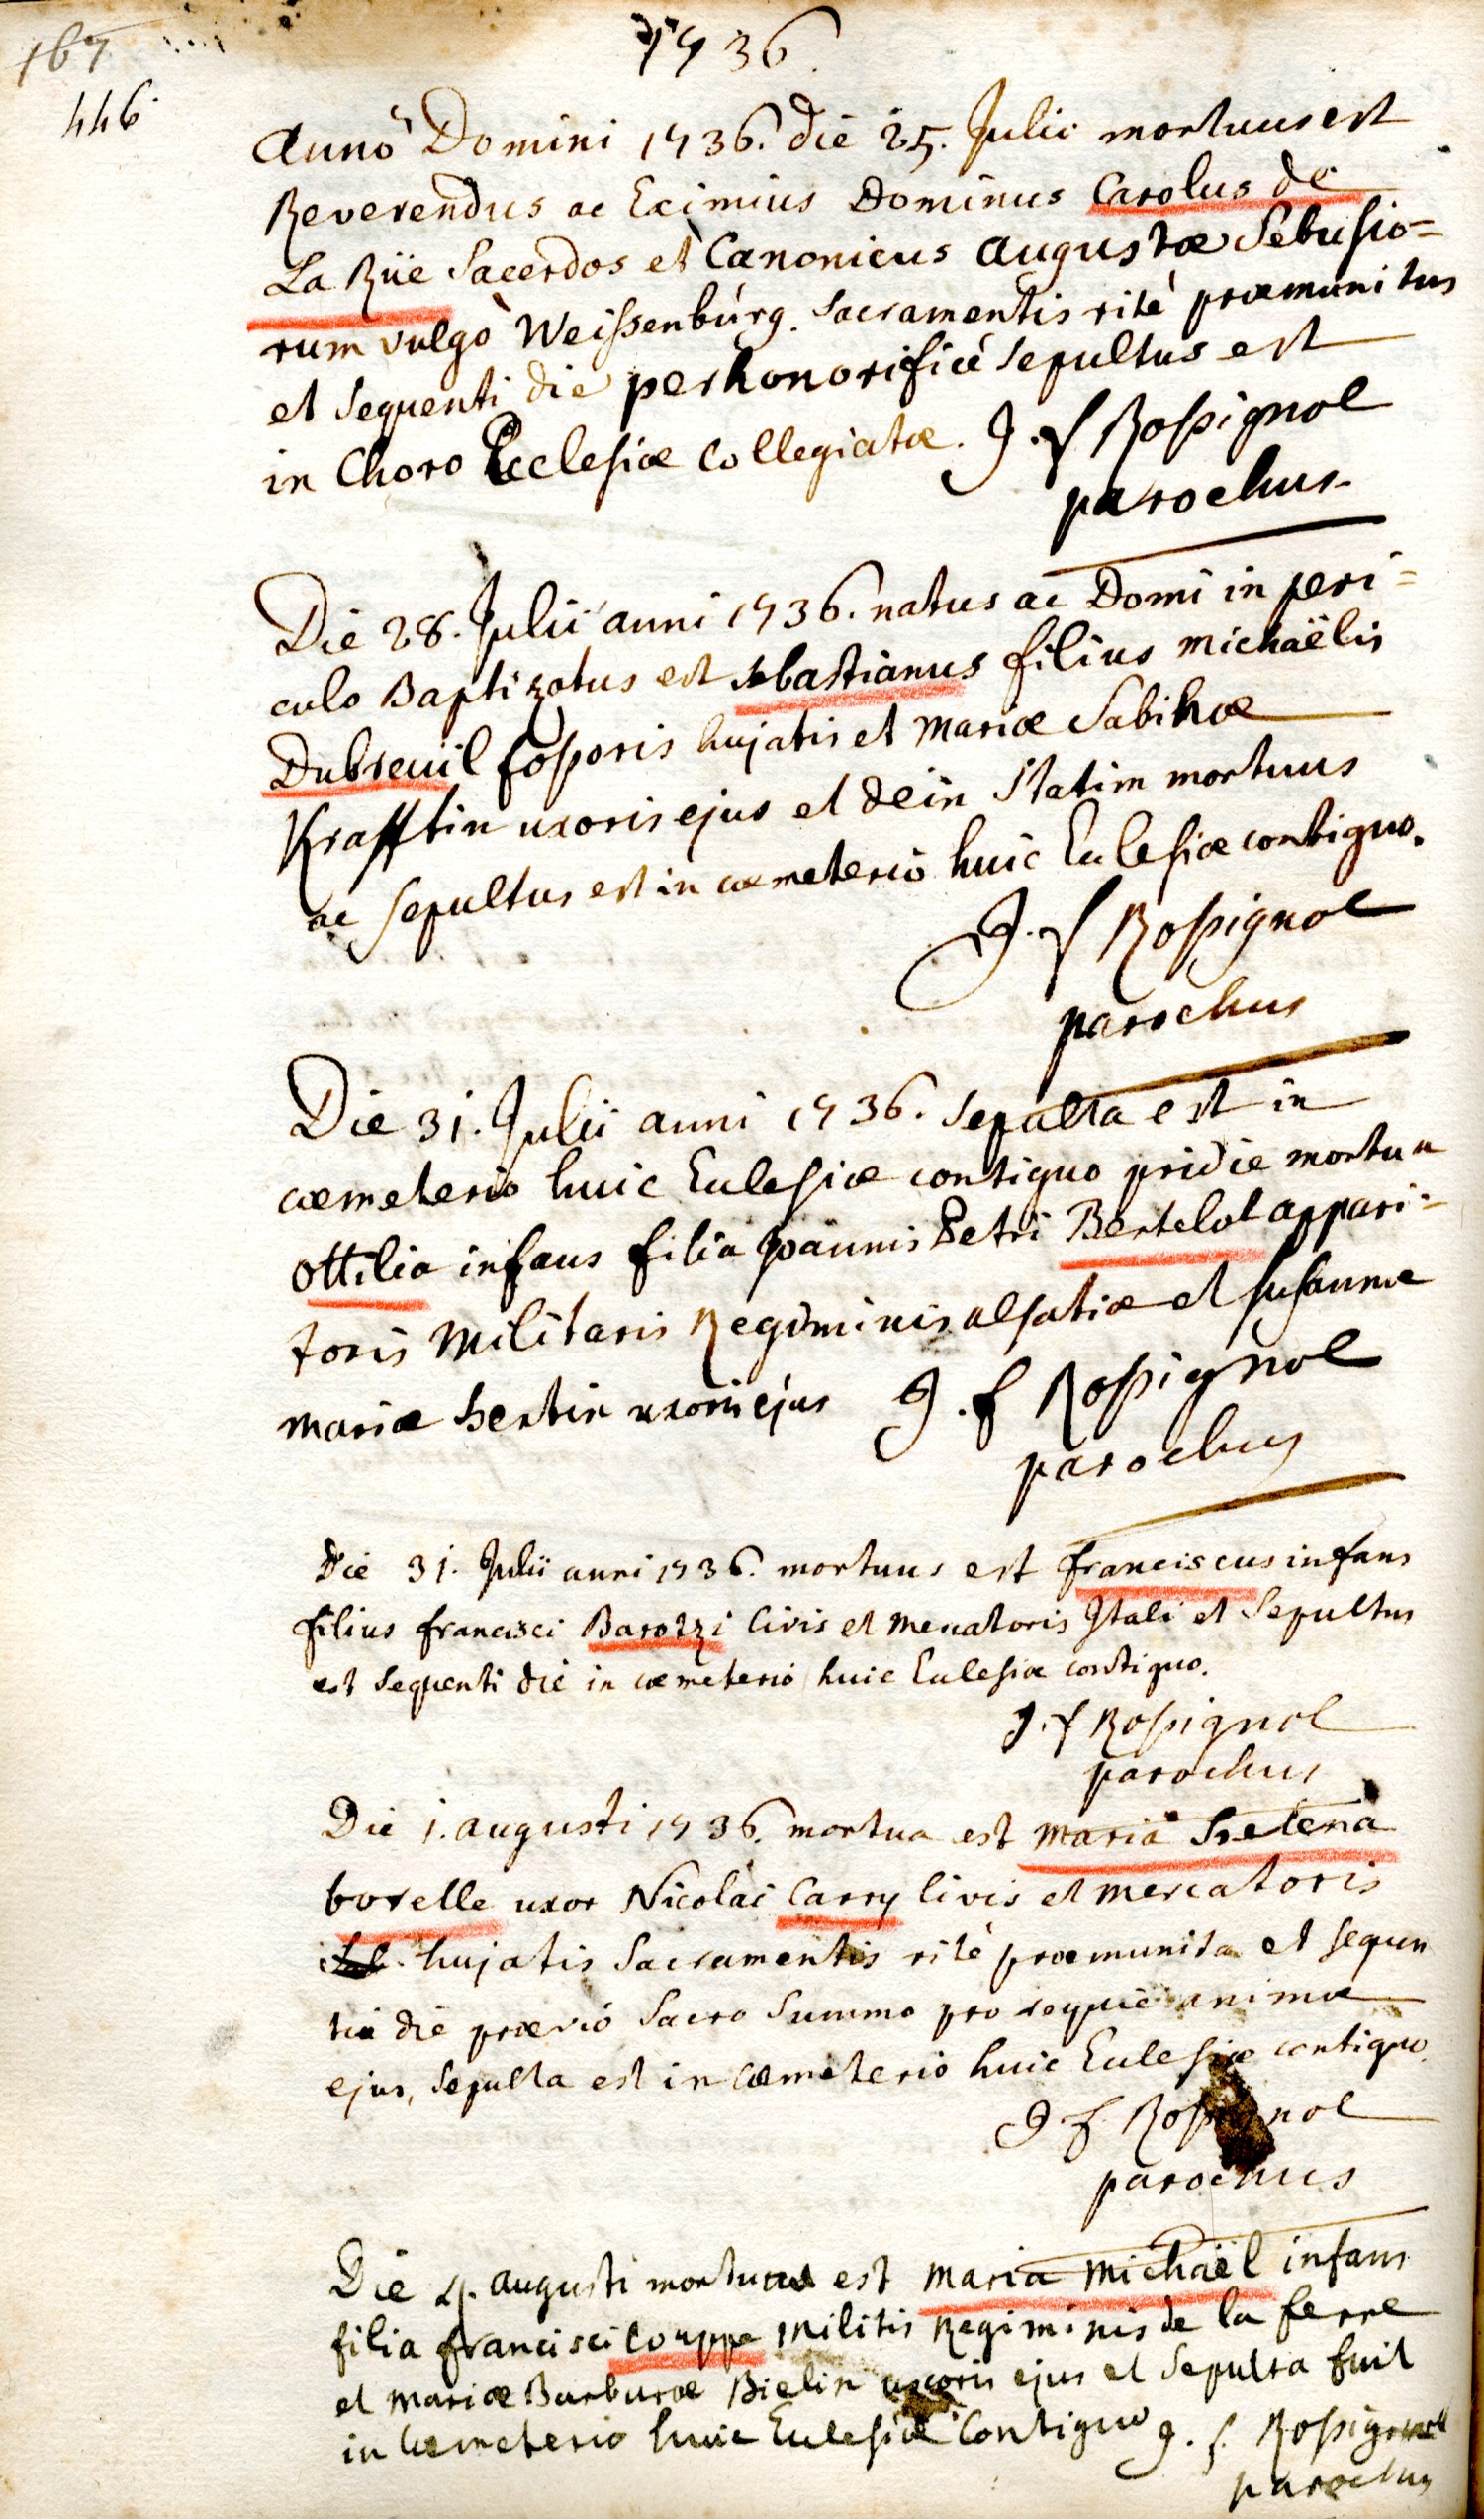 167
446
1736.
Anno Domini 1736. die 25. Julii mortuus est
Reverendus ac Eximius Dominus Carolus de
La Rüe Sacerdos et Canonicus Augustæ Sebusio=
rum vulgò Weissenbúrg. Sacramentis ritè præmunitus
et sequenti die perhonorificè sepultus est
in Choro Ecclesiæ Collegiatæ. J. f Rossignol
parochus
Die 28. Julii anni 1736. natus ac Domi in peri=
culo Baptizatus est sebastianus filius michaëlis
Dubreuil hujatis et mariæ Sabinæ
Krafftin uxoris ejus et dein statim mortuus
ac sepultus est in cœmeterio huic Ecclesiæ contiguo.
J. f Rossignol
parochus
Die 31. Julii anni 1736. sepulta est in
cœmeterio huic Ecclesiæ contiguo pridie mortua
Ottilia infans filia Joannis Petri Bertelot appari=
toris Militaris Regiminis alsatiæ et susannæ
mariæ hertin uxoris ejus J. f Rossignol
parochus
Die 31. Julii anni 1736. mortuus est franciscus infans
filius francisci Barozzi Civis et Mercatoris Itali et Sepultus
est sequenti die in cœmeterio huic Ecclesiæ contiguo.
J. f Rossignol
parochus
Die 1. augusti 1736. mortua est maria helena
borelle uxor Nicolai Carry Civis et Mercatoris
hujatis Sacramentis ritè præmunita et sequen
ti die prævio Sacro Summo pro requie animæ
ejus, Sepulta est in Cœmeterio huic Ecclesiæ contiguo.
J f Rossignol
parochus
Die 4. augusti mortua est maria michaël infans
filia francisci Couppe militis Regiminis de la ferre
et mariæ Barburæ Bielin uxoris ejus et Sepulta fuit
in Cœmeterio huic Ecclesiæ Contiguo J. f. Rossignol
parochus